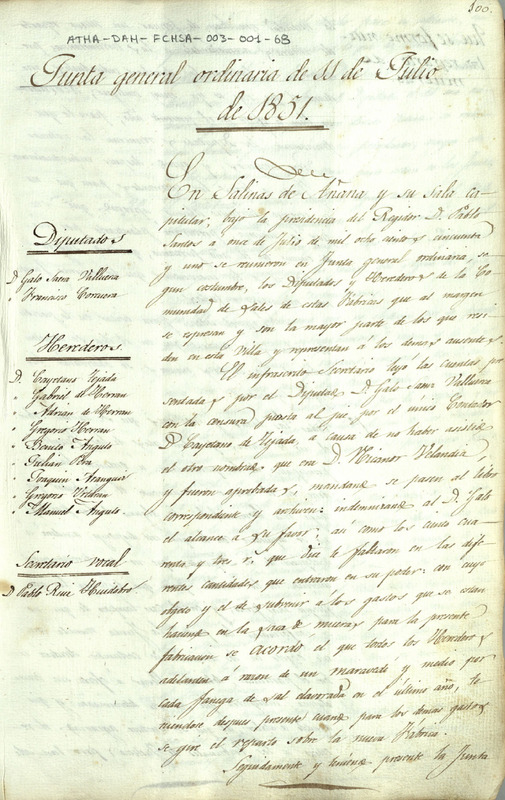 100.
ATHA-DAH-FCHSA-003-001-68
Junta general ordinaria de 11 de Julio
de 1851.
Diputados
D. Galo Saez Valluerca
" Francisco Corcuera
Herederos
D. Cayetano Tejada
" Gabriel de Herran
" Adrian de Herran
" Gregorio Herran
" Benito Angulo
" Julian
" Joaquin Aranguiz
" Gregorio
" Manuel Angulo
Secretario vocal
D. Pablo Ruiz Huidobro
En Salinas de Añana y su Sala ca-
pitular, bajo la presidencia del Regidor D. Pablo
Santos á once de Julio de mil ocho cientos cincuenta
y uno se reunieron en Junta general ordinaria, se-
gun costumbre, los Diputados y Herederos de la Co-
munidad de Sales de estas Fábricas que al margen
se espresan y son la mayor parte de los que resi-
den en esta Villa y representan á los demas ausentes.
El infrascrito Secretario leyó las cuentas pre-
sentadas por el Diputado D. Galo Saez Valluerca
con la censura puesta al pie por el único Contador
D. Cayetano de Tejada, á causa de no haber asistido
el otro nombrado que era D. Nicanor Velandia,
y fueron aprobadas, mandando se pasen al libro
correspondiente y archiven: indemnizando al D. Galo
el alcance á su favor; así como los ciento cua-
renta y tres r.s que dice le faltaron en las dife-
rentes cantidades que entraron en su poder: con cuyo
objeto y el de subvenir á los gastos que se estan
haciendo en la saca de muera para la presente
fabricacion se acordó el que todos los Herederos
adelanten á razon de un maravedi y medio por
cada fanega de sal elavorada en el último año, te-
niendose despues presente cuando para los demas gastos
se gire el reparto sobre la nueva Fábrica.
Seguidamente y teniendo presente la Junta